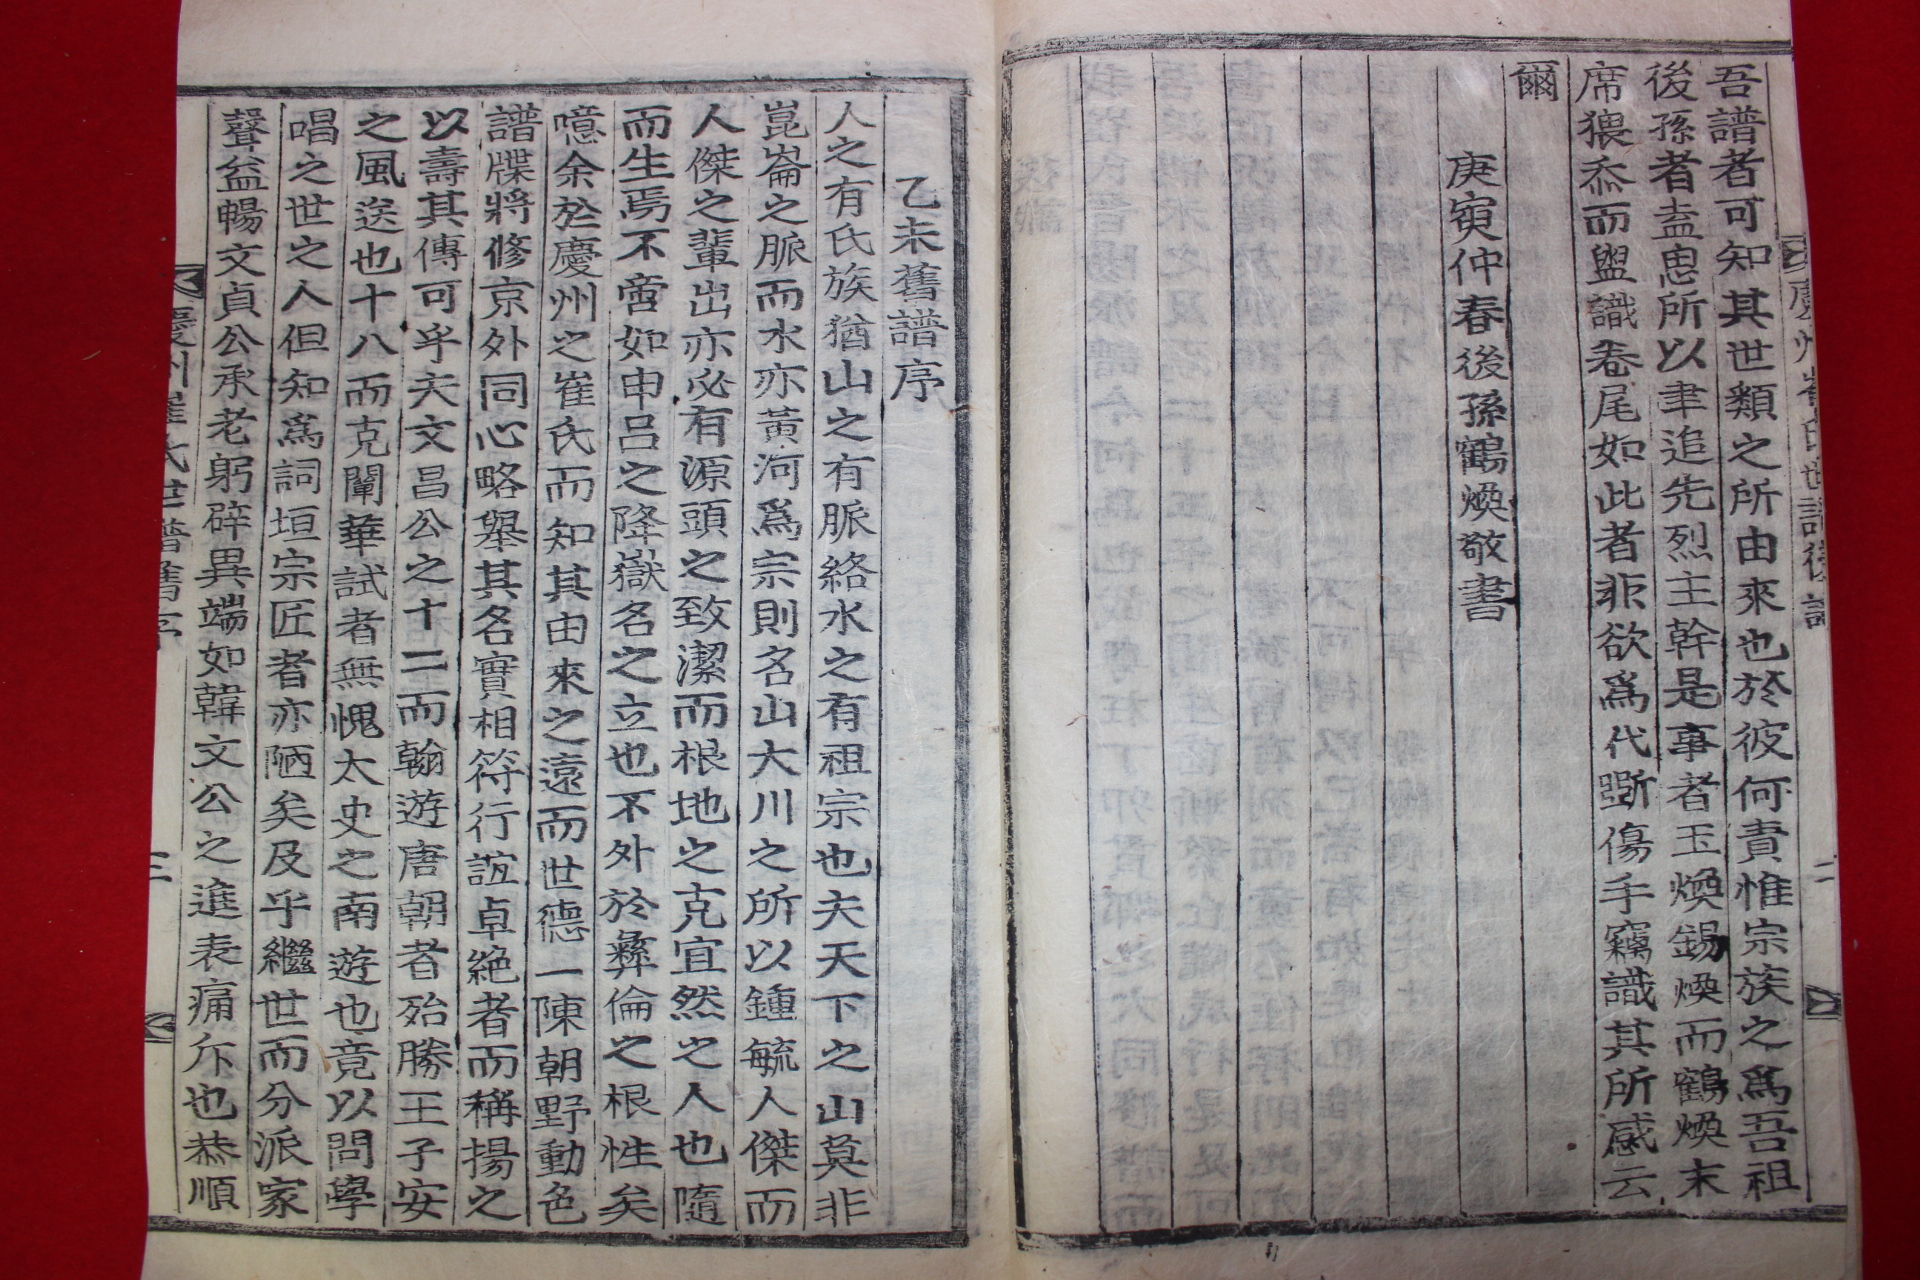 吾譜者可知其世類之所由來也於彼何責惟宗族之爲吾祖
後孫者盍思所以聿追先烈主幹是事者玉煥錫煥而鶴煥末
席猥忝而與識卷尾如此者非欲爲代斲傷手竊識其所感云
爾
庚寅仲春後孫鶴煥敬書
乙未舊譜序
人之有氏族猶山之有脈絡水之有祖宗也夫天下之山莫非
崑崙之脈而水亦黃河爲宗則名山大川之所以鍾毓人傑而
人傑之輩出亦必有源頭之致潔而根地之克宜然之人也隨
而生焉不啻如申呂之降嶽名之立也不外於彝倫之根性矣
噫余於慶州之崔氏而知其由來之遠而世德一陳朝野動色
譜牒將修京外同心略舉其名實相符行誼卓絶者而稱揚之
以壽其傳可乎夫文昌公之十二而翰遊唐朝者殆勝王子安
之風送也十八而克闡華試者無愧太史之南遊也竟以問學
唱之世之人但知爲詞垣宗匠者亦陋矣及乎繼世而分派家
聲益暢文貞公承老躬辟異端如韓文公之進表痛斥也恭順
慶州崔氏世譜舊序